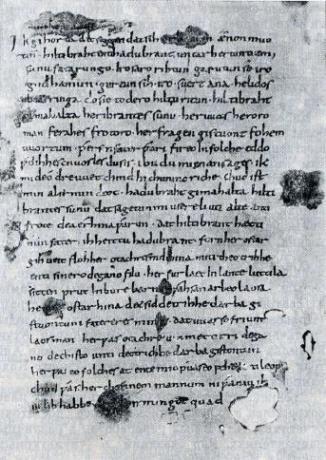 Ik gihorta dat seggen dat sih ænon muo
tin. hiltibraht enti hadubrant untar heriun tuem.
sunu fatarungo. iro saro rihtun garutun se iro
gudhamun. gurtun sih. iro. suert ana. helidos
ubar ringa do sie to dero hiltu ritun. hiltibraht
gimahalta heribrantes sunu. her uuas heroro
man ferahes frotoro. her fragen gistuont fohem
uuortum. ƿer sin fater ƿari fireo In folche eddo
ƿelihhes cnuosles du sis. ibu du mi enan sages. ik
mi de odre uuet chind In chunincriche. chud ist
min al irmindeot. hadubraht gimahalta hilti
brantes sunu dat sagetun mi usere liuti alte anti
frote dea érhina ƿarun. dat hiltibrant hætti
min fater. ih heittu hadubrant. forn her ostar
gihueit floh her otachres nid hina miti theotrihhe.
enti sinero degano filu. her furlaet In lante luttila
sitten prut In bure barn unƿahsan arbeo laosa.
ostar hina d& sid d&rihhe darba gi
stuontum fateres mines. dat uuas so friunt
laos man her ƿas otachre ummet irri dega
no dechisto unti deotrichhe darba gistontun
her ƿas eo folches at ente imo ƿuas eo feh&a ti leop.
chud ƿas her chonnem mannum ni ƿaniu ih
iu lib habbe irmingot quad